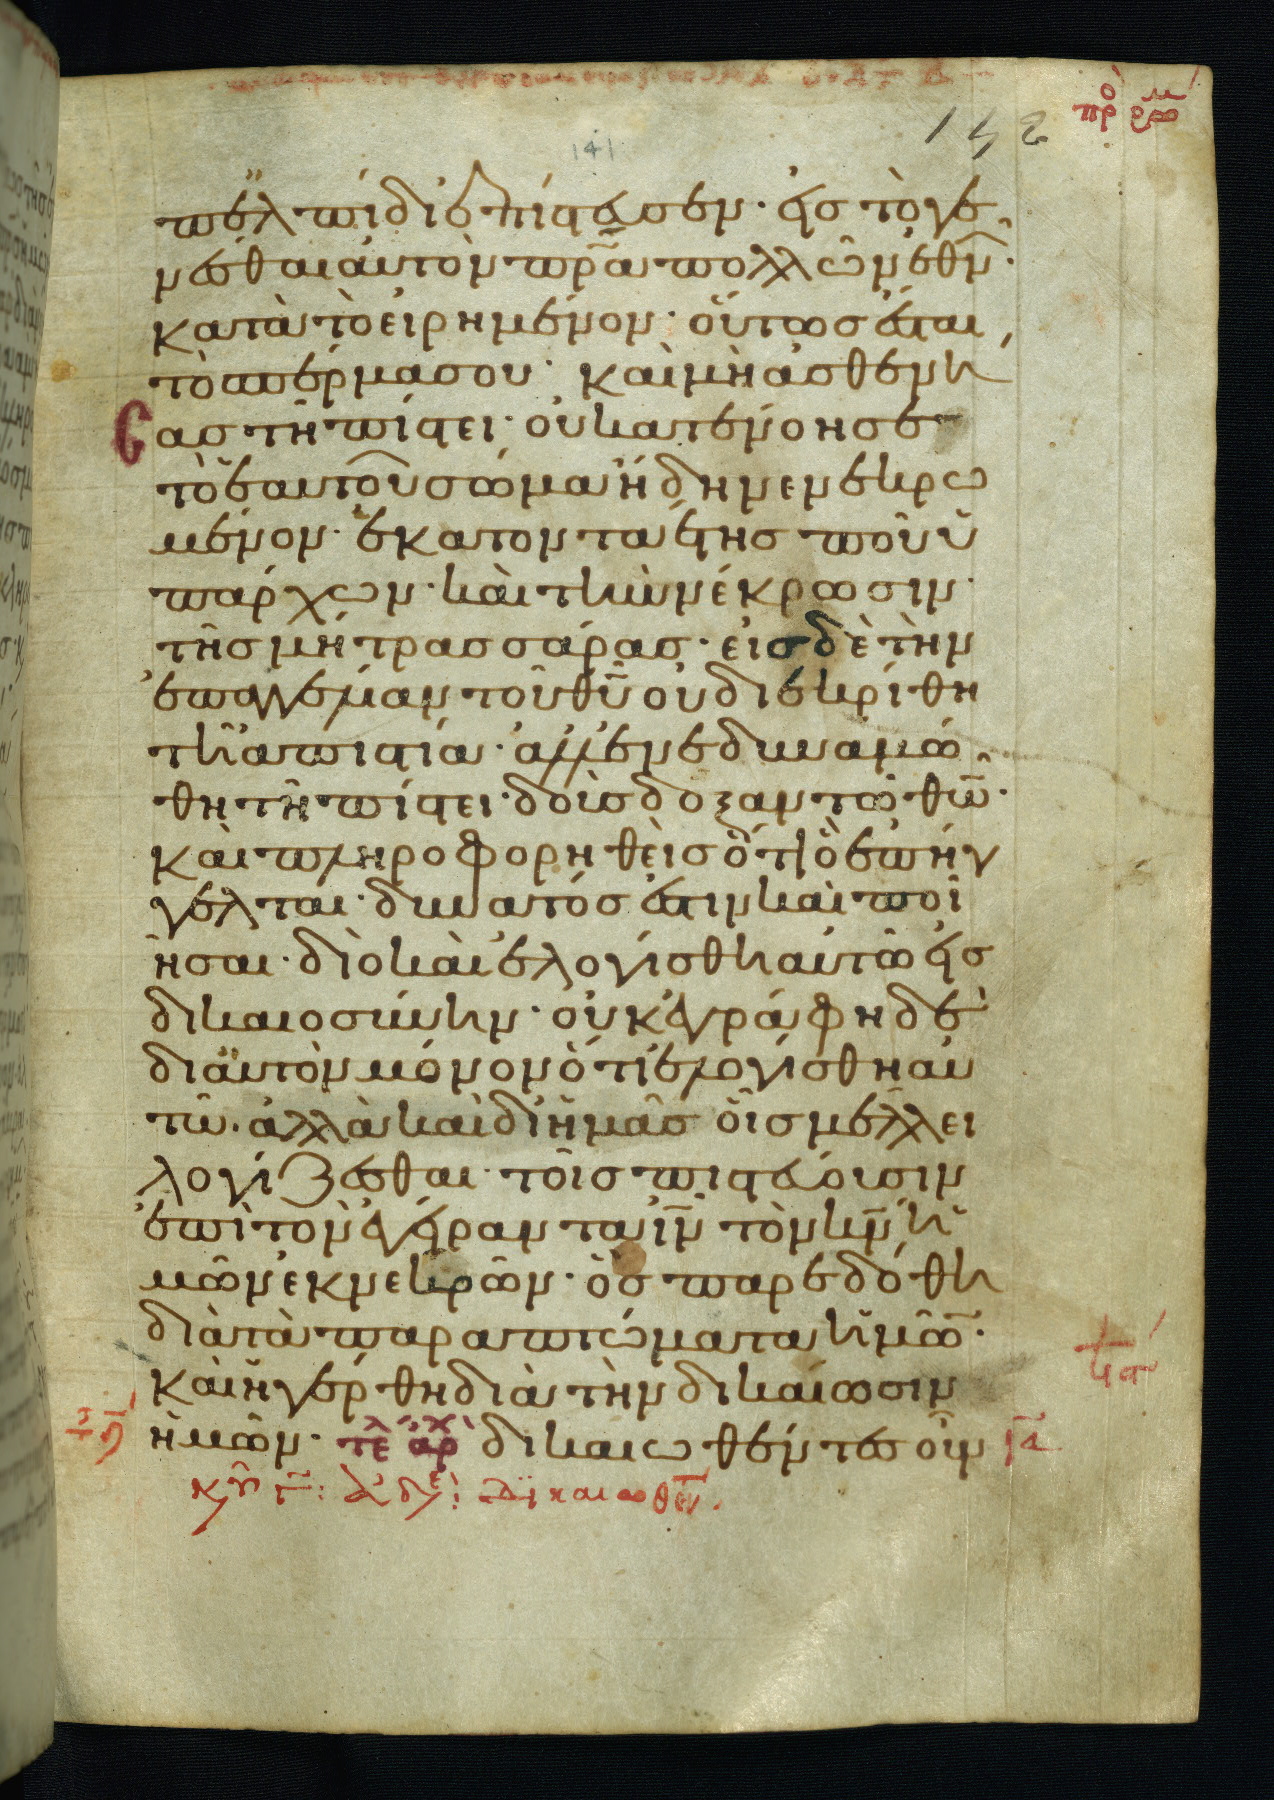 πρὸ ρωμ
141
142
π ἐλπίδι ἐπίστευσεν· εἰς τὸ γε
νέσθαι αὐτὸν πρ̅α πολλῶν ἐθνῶ·
κατὰ τὸ εἰρημένον· οὕτως ἔσται
τὸ σπέρμα σου· καὶ μὴ ἀσθενή
σας τῇ πίστει· οὐ κατενόησε
τὸ ἑαυτοῦ σῶμα ἤδη νενεκρω
μένον· ἑκατονταέτης που ὑ
πάρχων· καὶ τὴν νέκρωσιν
τῆς μήτρας σάρας· εἰς δὲ τὴν
ἐπαγγελίαν τοῦ θυ̅ οὐ διεκρίθη
τῇ ἀπιστία· ἀλλ' ἐνεδυναμώ
θη τῇ πίστει· δοὺς δόξαν τῷ θω̅·
καὶ πληροφορηθεὶς ὅτι ὃ ἐπήγ
γελται· δυνατός ἐστιν καὶ ποι
ῆσαι· διὸ καὶ ἐλογίσθη αὐτῷ εἰς
δικαιοσύνην· οὐκ ἐγράφη δὲ
δι' αὐτὸν μόνον ὅτι ἐλογίσθη αὐ
τῷ· ἀλλὰ καὶ δι' ἡμᾶς οἷς μέλλει
λογίζεσθαι· τοῖς πιστεύουσιν
ἐπὶ τὸν ἐγείραντα ιν̅ τὸν κν̅ ἡ
μῶν ἐκ νεκρῶν· ὃς παρεδόθη
διὰ τὰ παραπτώματα ἡμῶ̅·
καὶ ἠγέρθη διὰ τὴν δικαίωσιν
ἡμῶν· τε̅λ ἀρχ δικαιωθέντες οὖν
κυ γ: ἀδε: δικαιωθεν.